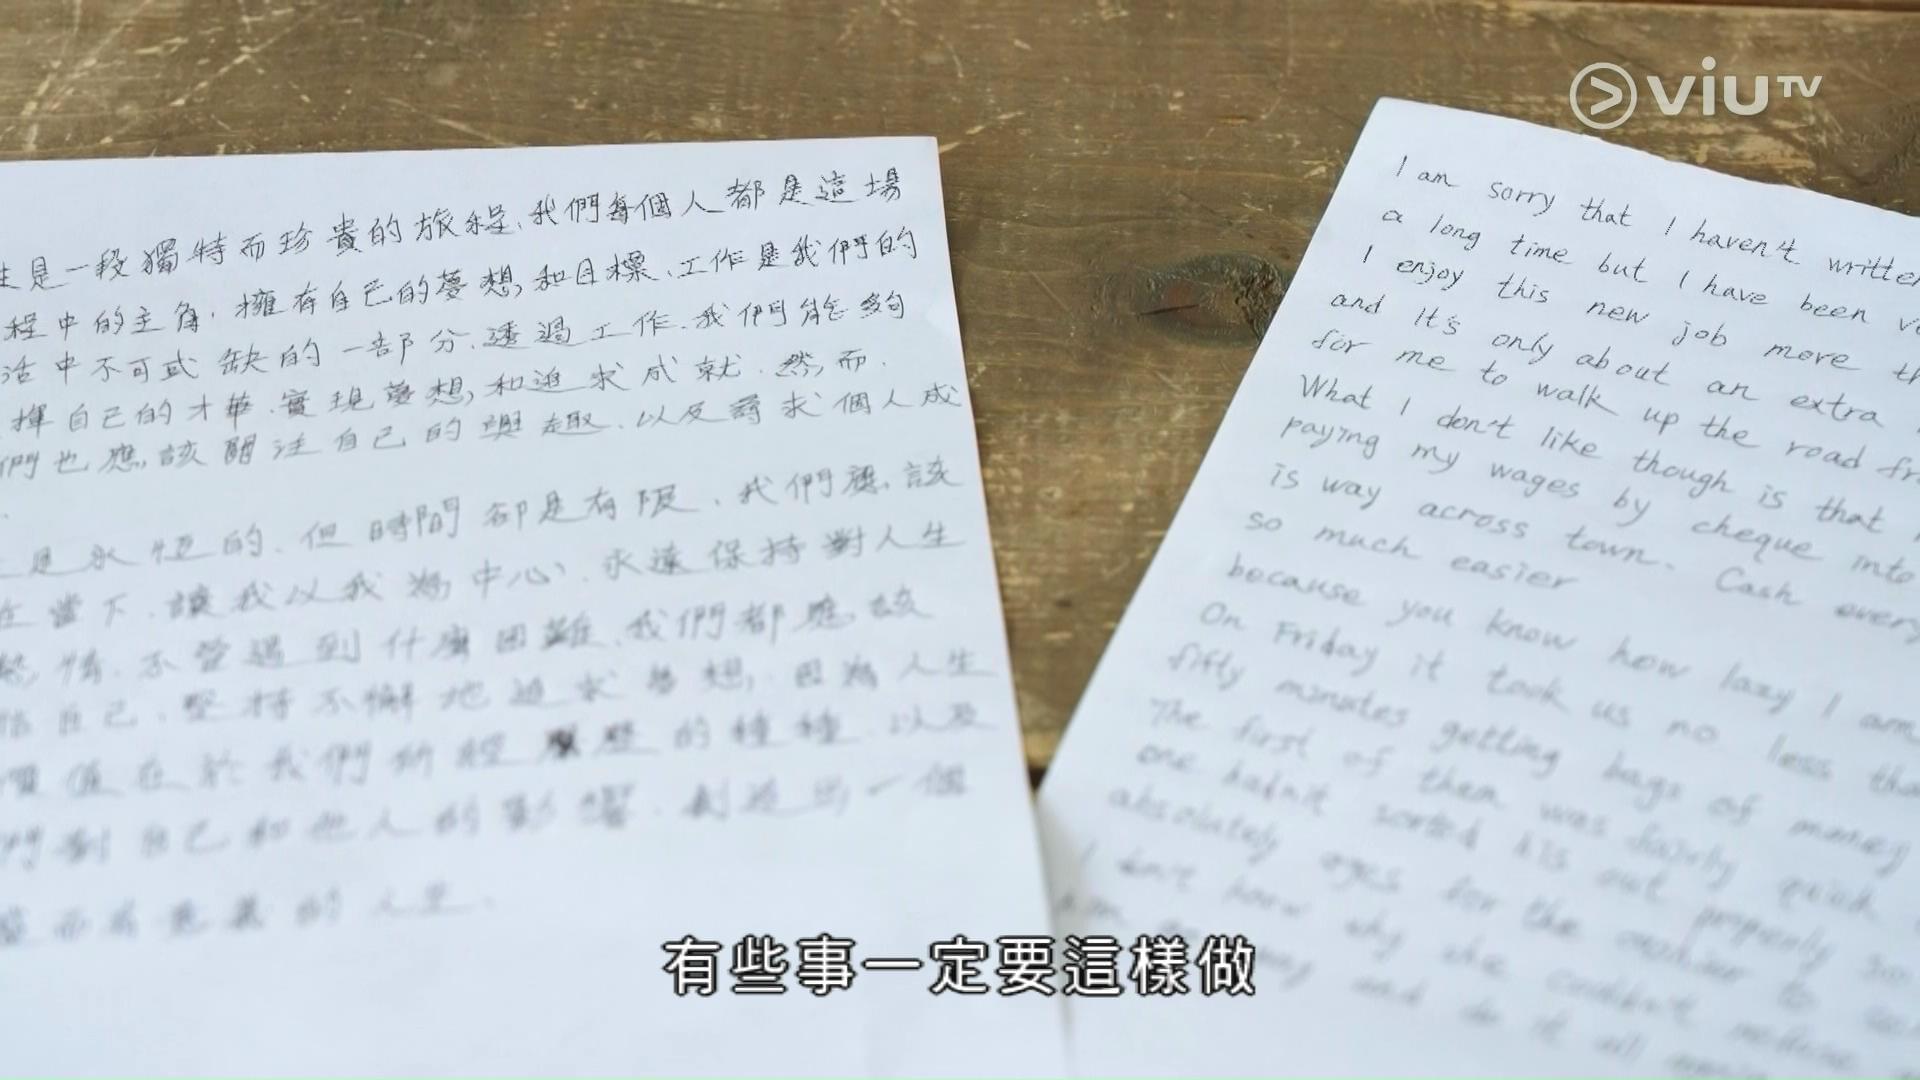 viuTV
是一段獨特而珍貴的旅程、我們每個人都是這場
程中的主角，擁有自己的夢想，和目標、工作是我們的
活中不可或缺的一部分、透過工作、我們能夠
揮自己的才華、實現夢想，和追求成就．然而．
們也應該關注自己的興趣、以及尋求個人成
是永恆的、但時間卻是有限、我們應該
在當下、讓我以我為中心、永遠保持對人生
熱情、不管遇到什麼困難、我們都應該
自己、堅持不懈地追求夢想、因為人生
價值在於我們所經歷的種種、以及
們對自己和他人的影響、創造出一個
而有意義的人生．
I am sorry that I haven't written
a long time but I have been
I enjoy this new job more
and It's only about an extra
for me to walk up the road
What I don't like though is that
paying my wages by cheque into
is way across town. Cash every
so much easier
because you know how lazy I am
On Friday it took us no less
fifty minutes getting bags of money
The first of them was fairly quick
one hadn't sorted his out properly so
absolutely ages for the cashier to
I don't know why she couldn't
and do it all
有些事一定要這樣做